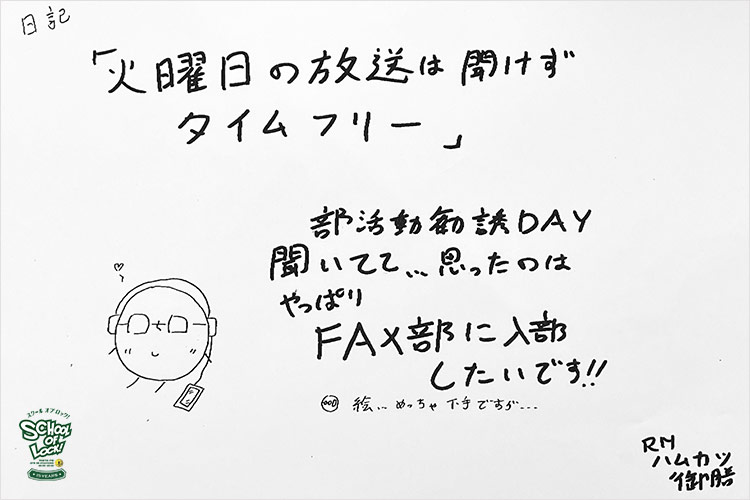 日記
「火曜日の放送は聞けず
タイムフリー」
部活動勧誘DAY
聞いてて…思ったのは
やっぱり
FAX部に入部
したいです!!
絵…めっちゃ下手ですが…
スクールオブロック!
SCHOOL
OF
LOCK!
RN
ハムカツ
御膳